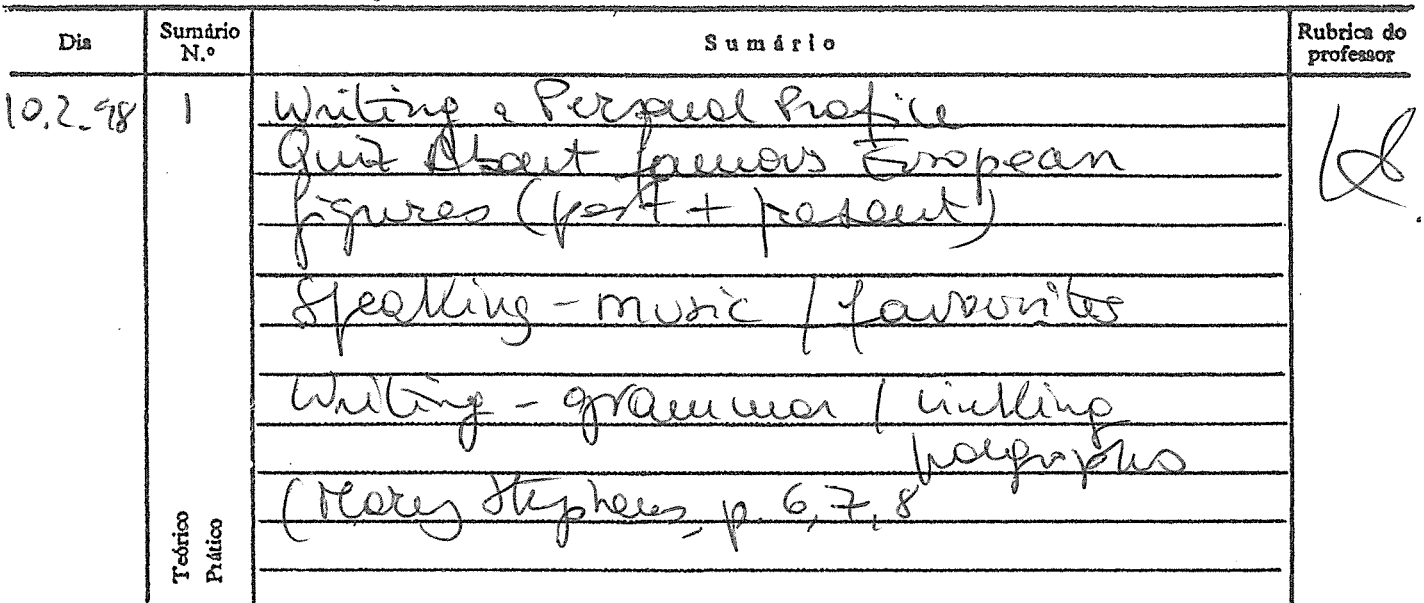 Dia Sumário N.º Sumário Rubrica do professor
10.2.98 1 Writing a Personal Profile
Quiz About famous European
figures (past + present)
Speaking - music / favourites
Writing - grammar / linking
paragraphs
(Mary Stephens, p. 6, 7, 8
Teórico
Prático